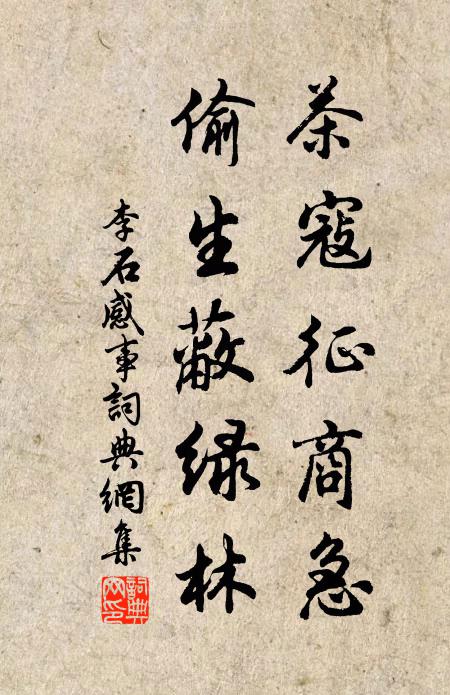 茶寇征商急
偷生蔽绿林
李石感事詞典網集
詞典网印